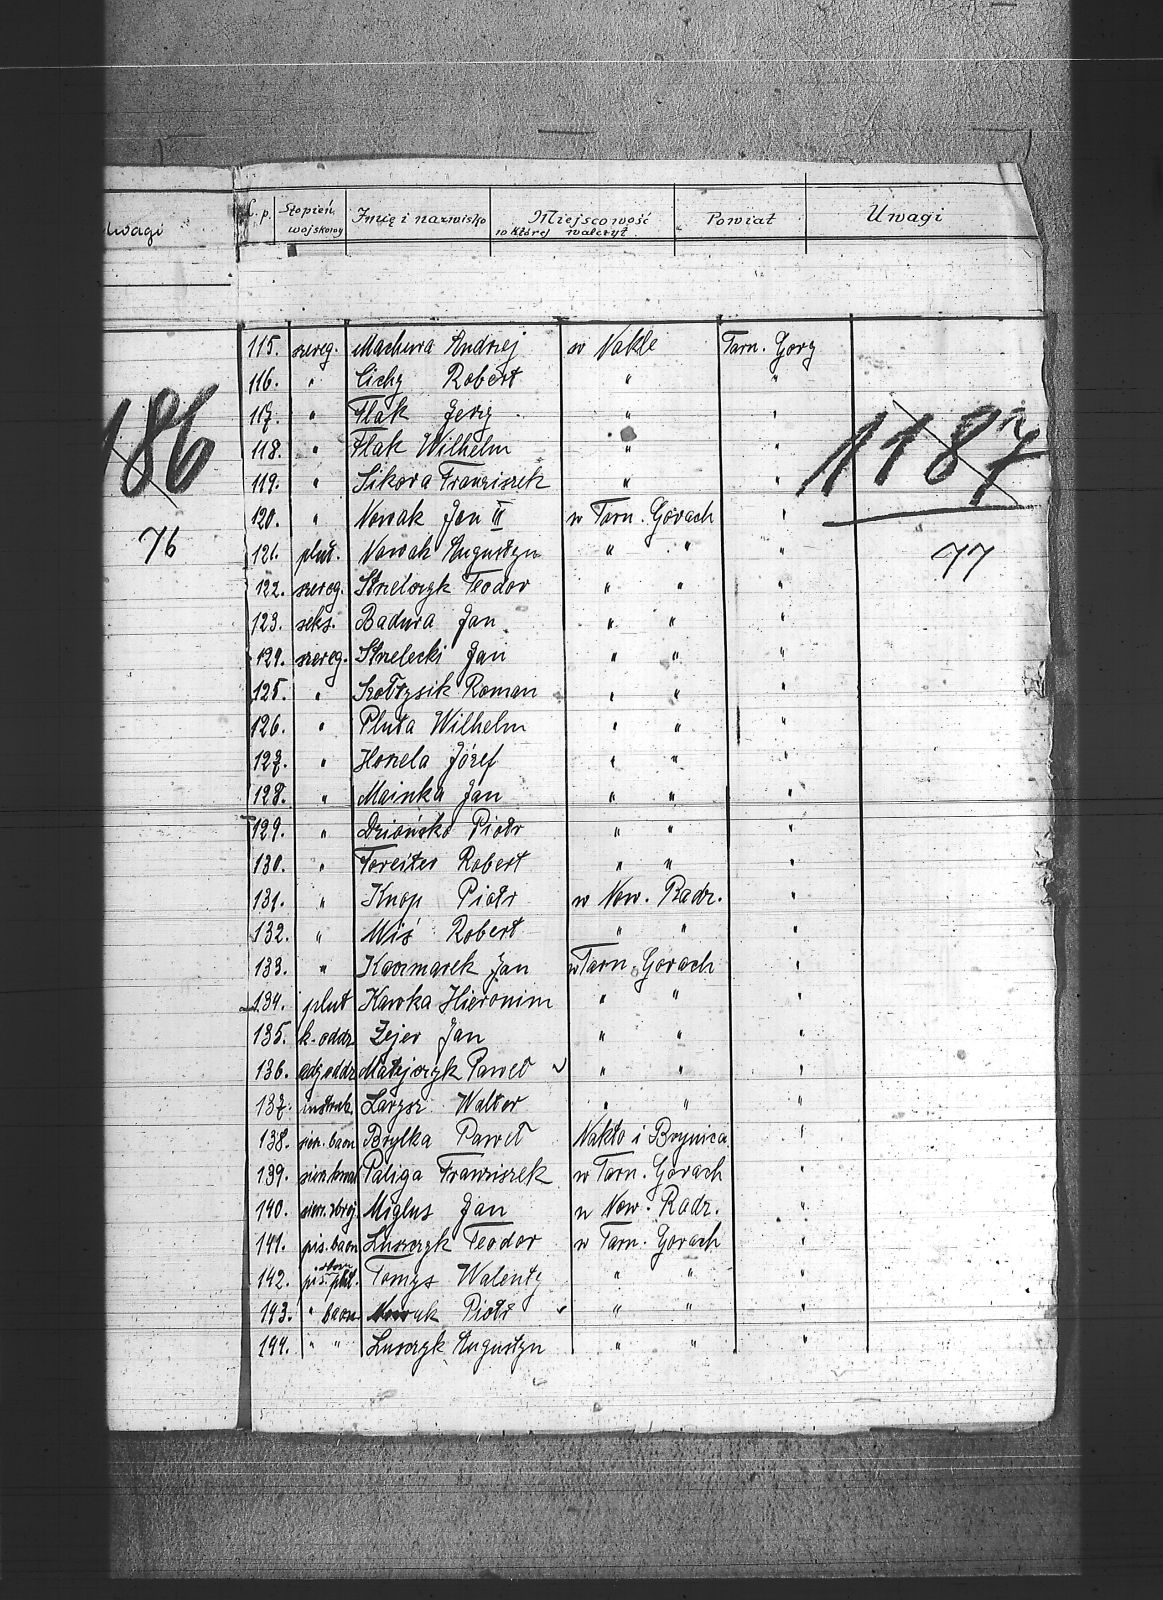 Uwagi
186
76
L. p. Stopień wojskowy Imię i nazwisko Miejscowość w której walczył. Powiat Uwagi
115. szereg. Machura Andrzej w Nakle Tarn. Góry
116. " Cichy Robert " "
117. " Flak Jerzy " "
118. " Flak Wilhelm " "
119. " Sikora Franciszek " "
1187
120. " Nowak Jan II w Tarn. Górach "
121. plut. Nowak Augustyn " " "
77
122. szereg. Strzelczyk Teodor " " "
123. seks. Badura Jan " " "
124. szereg. Strzelecki Jan " " "
125. " Szołtysik Roman " " "
126. " Pluta Wilhelm " " "
127. " Horzela Józef " " "
128. " Mainka Jan " " "
129. " Piotr " " "
130. " Robert " " "
131. " Knop Piotr w Now. Radz. "
132. " Miś Robert " " "
133. " Kaczmarek Jan w Tarn. Górach "
134. plut Kawka Hieronim " " "
135. k. oddz. Zejer Jan " " "
136. adj. oddz. Matejczyk Paweł " " "
137. instruk. Larysz Walter " " "
138. sierż. baon Brylka Paweł Nakło i Brynica "
139. Paliga Franciszek w Tarn. Górach "
140. sierż. zbroj. Miglus Jan w Now. Radz. "
141. pis. baon Luszczyk Teodor w Tarn. Górach "
142. pis. plut. Tomys Walenty " " "
143. " baon Nowak Piotr " " "
144. " " Luszczyk Augustyn " " "